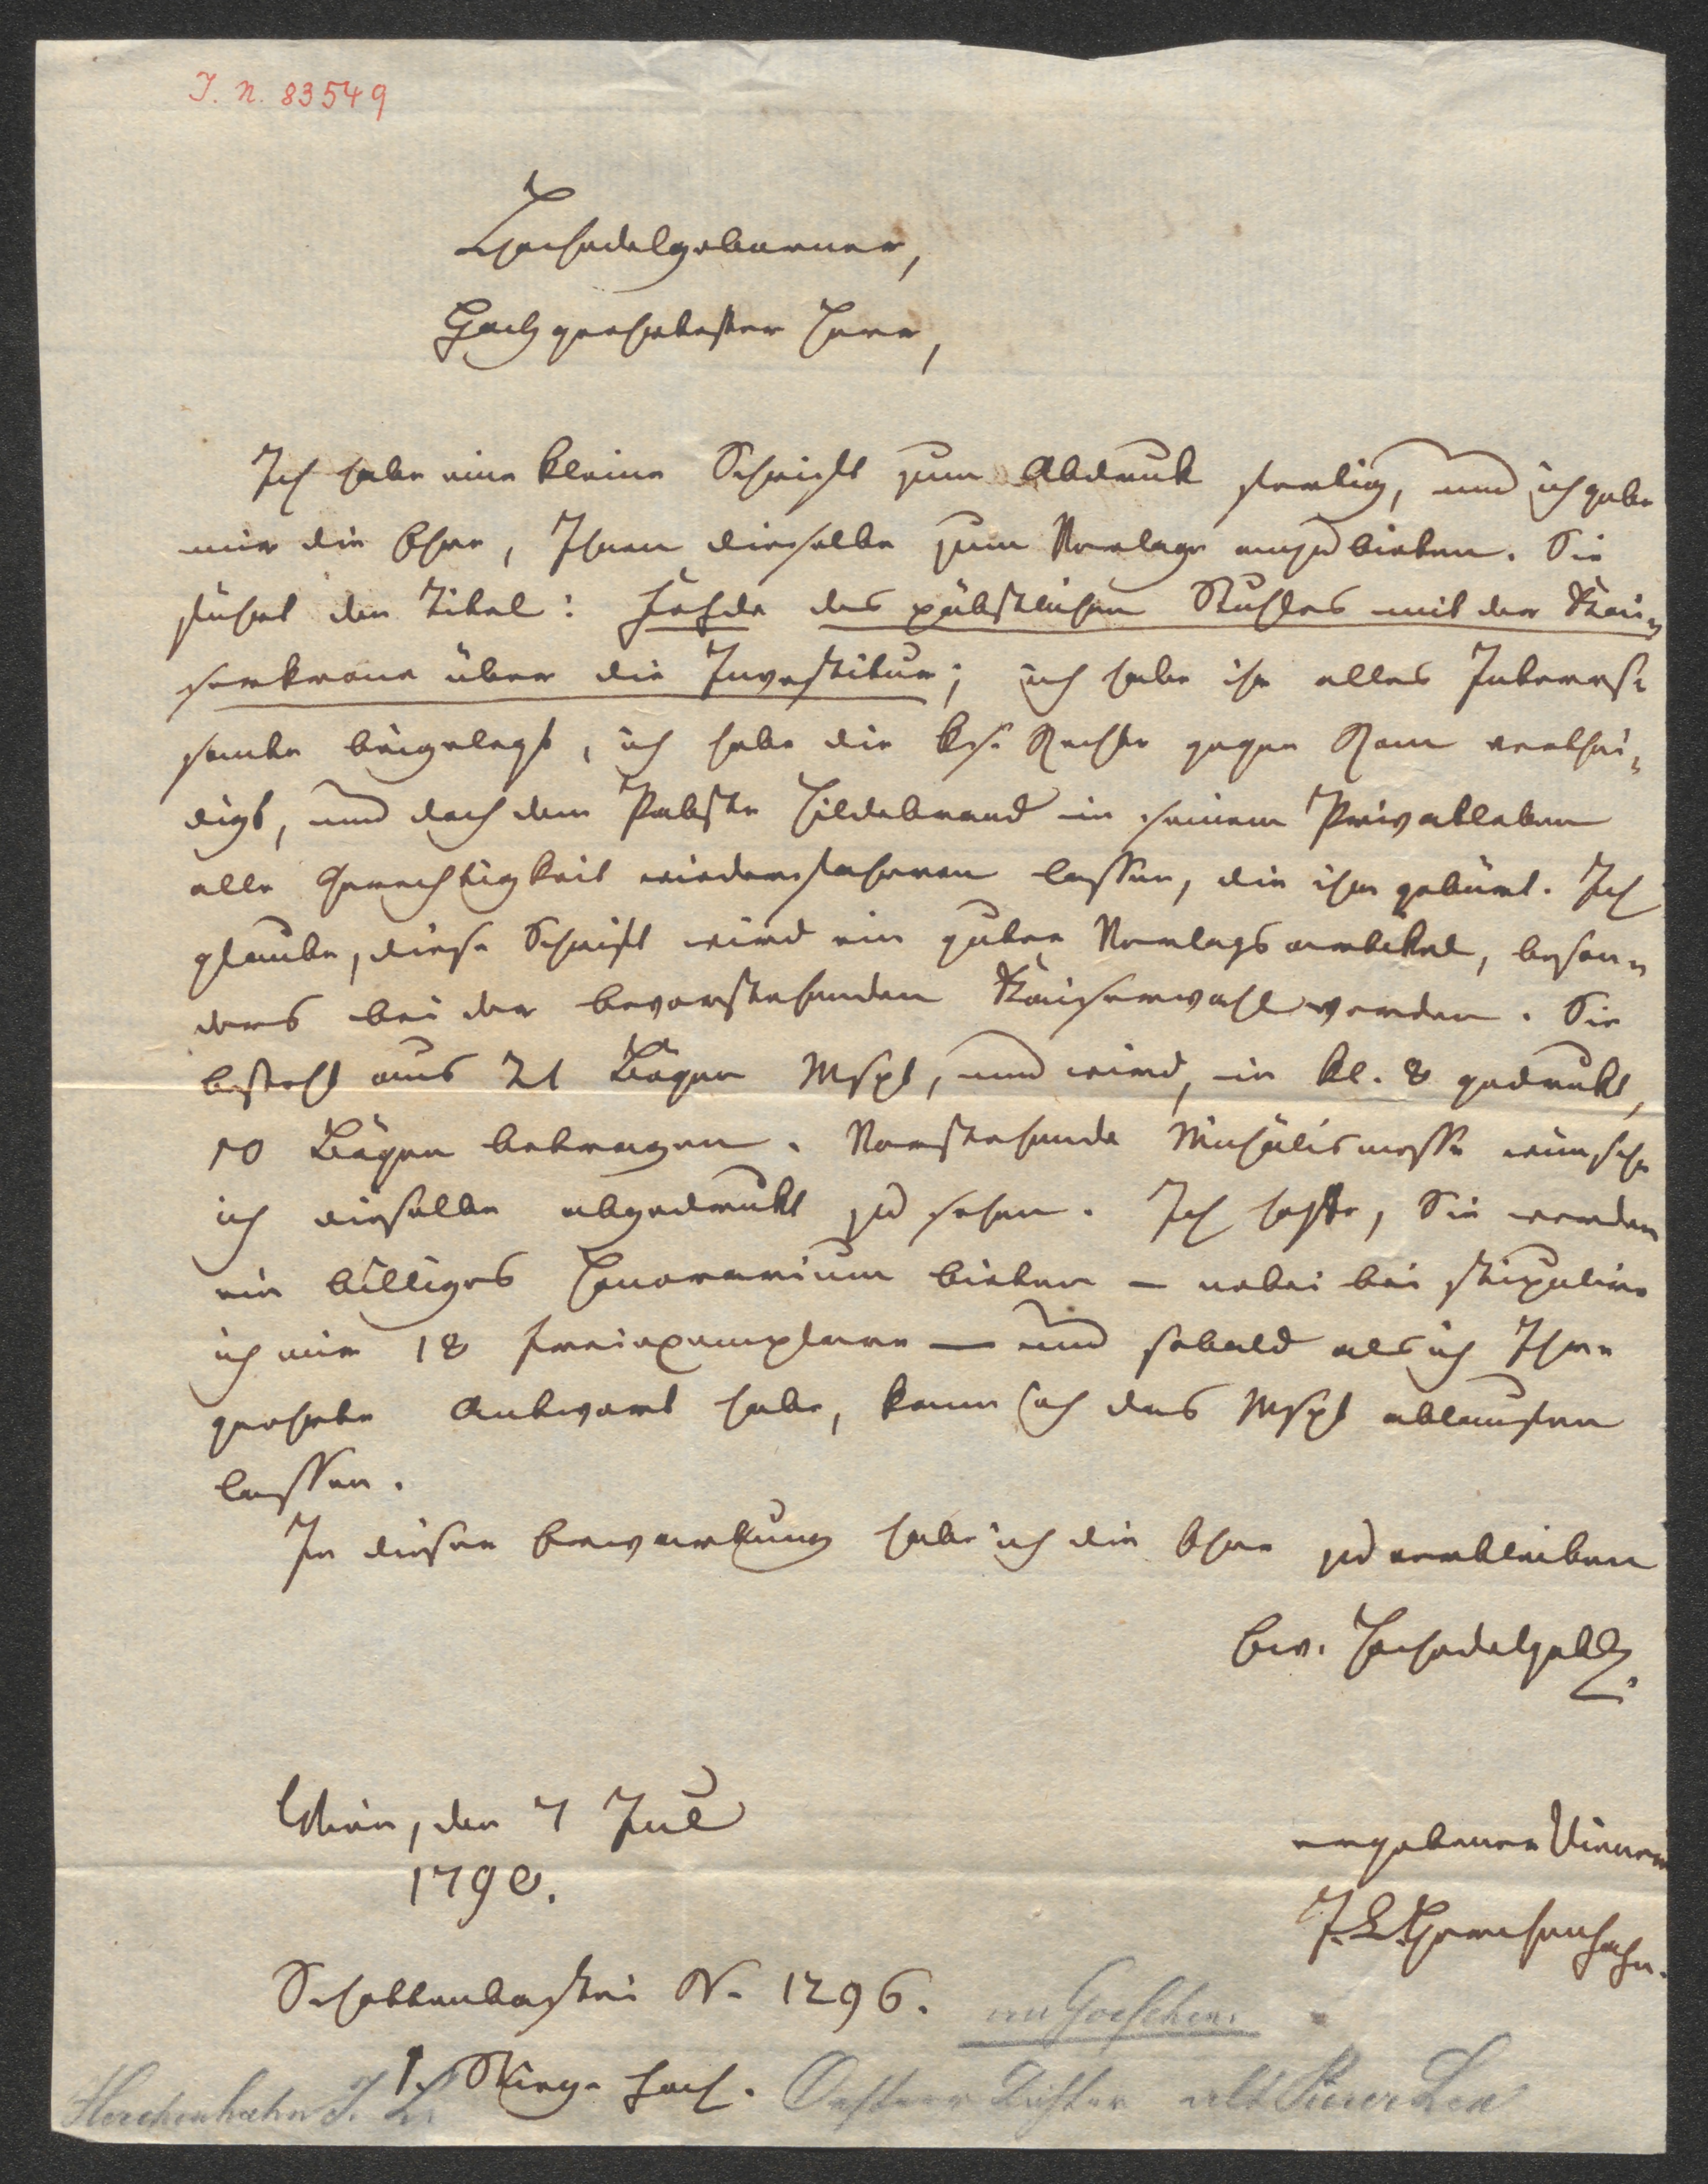 I. N. 83549
Hochedelgeborner,
Hochgeehrtester Herr,
Ich habe eine kleine Schrift zum Abdruk fertig, und ich gebe
mir die Ehre, Ihnen dieselbe zum Verlage anzubieten. Sie
führt den Titel: Fehde des päbstlichen Stuhles mit der Kai-
serkrone über die Investitur; ich habe ihr alles Interes-
sante beigelegt, ich habe die ks. Rechte gegen Rom verthei-
digt, und doch dem Pabste Hildebrand in seinem Privatleben
alle Gerechtigkeit wiederfahren lassen, die ihm gebürt. Ich
glaube, diese Schrift wird ein guter Verlagsartikel, beson-
ders bei der bevorstehenden Kaiserwahl werden. Sie
besteht aus 21 Bögen Mspt, und wird, in kl. 8 gedrukt,
10 Bögen betragen. Vorstehende Michälismesse wünsche
ich dieselbe abgedrukt zu sehen. Ich hoffe, Sie werden
ein billiges Honorarium bieten — wobei bei stipulire
ich mir 18 Freiexemplare — und sobald als ich Ihre
geehrte Antwort habe, kann ich das Mspt ablaufen
lassen.
In dieser Erwartung habe ich die Ehre zu verbleiben
Ew. Hochedelgeb.
Wien, den 7 Jul
1790.
ergebener Diener
J. C. Herchenhahn.
Schottenbastei N. 1296.
an Goeschen
1. Stiege hoch.
Herchenhahn J. C.
Oesterr Dichter